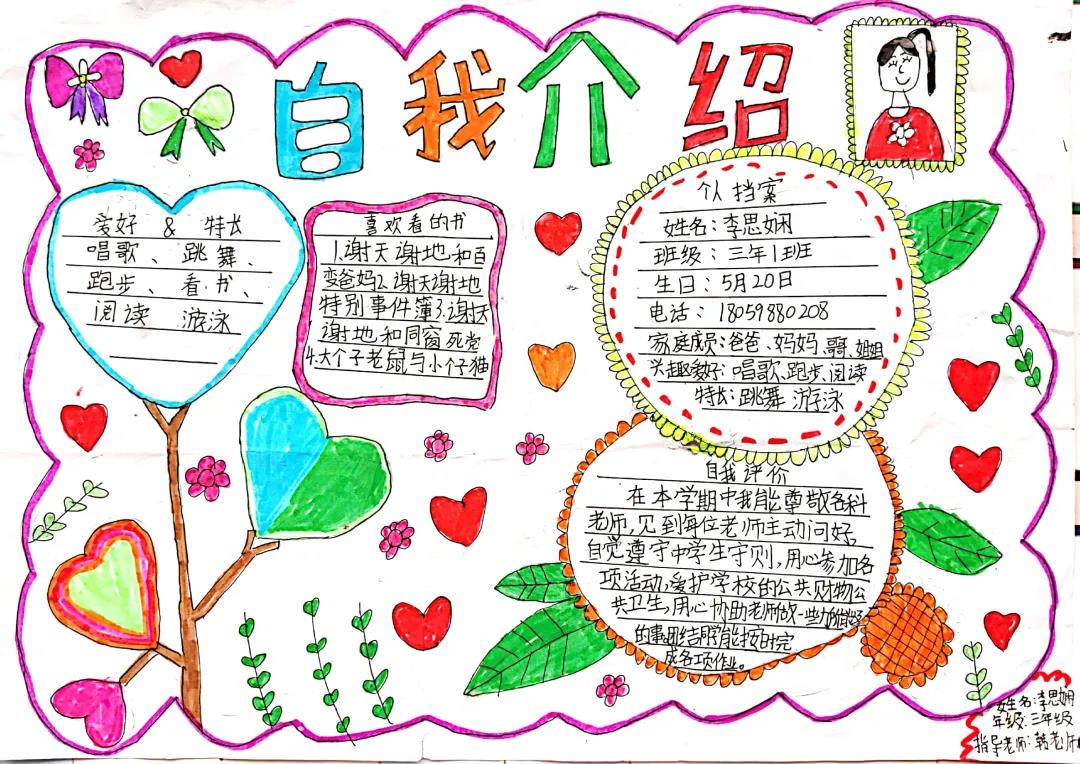 自我介绍
爱好 & 特长
唱歌、跳舞、
跑步、看书、
阅读 游泳
喜欢看的书
1.谢天谢地和百
变爸妈2.谢天谢地
特别事件簿3.谢天
谢地和同窗死党
4.大个子老鼠与小个子猫
个人挡案
姓名:李思娴
班级:三年1班
生日:5月20日
电话:18059880208
家庭成员:爸爸、妈妈、哥哥、姐姐
兴趣爱好:唱歌、跑步、阅读
特长:跳舞 游泳
自我评价
在本学期中我能尊敬各科
老师,见到每位老师主动问好,
自觉遵守中学生守则,用心参加各
项活动,爱护学校的公共财物公
共卫生,用心协助老师做一些力所能及
的事,团结同学,能按时完
成各项作业。
姓名:李思娴
年级:三年级
指导老师:韩老师